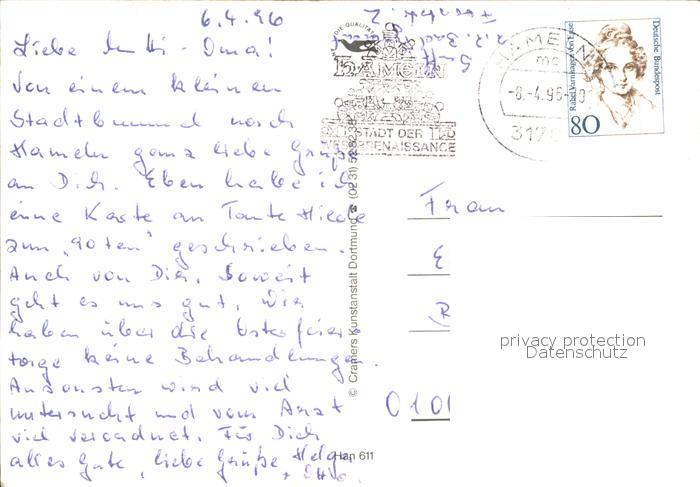 6.4.96
Liebe Mutti - Oma!
Von einem kleinen
Stadtbummel nach
Hameln ganz liebe Grüße
an Dich. Eben habe ich
eine Karte an Tante
zum "90ten" geschrieben.
Auch von Dir. Soweit
geht es uns gut. Wir
haben über die Osterfeier-
tage keine Behandlungen.
Ansonsten wird viel
untersucht und vom Arzt
viel verordnet. Für Dich
alles Gute, liebe Grüße Helga
+ Otto.
© Cramers Kunstanstalt Dortmund (02 31)
Han 611
DIE QUALITÄT
HAMELN
STADT DER
WESERRENAISSANCE
HAMELN
mc
-8.-4.96
3178
Rahel Varnhagen von Ense
Deutsche Bundespost
80
z.Z. Bad
Frau
E
R
0101
privacy protection
Datenschutz